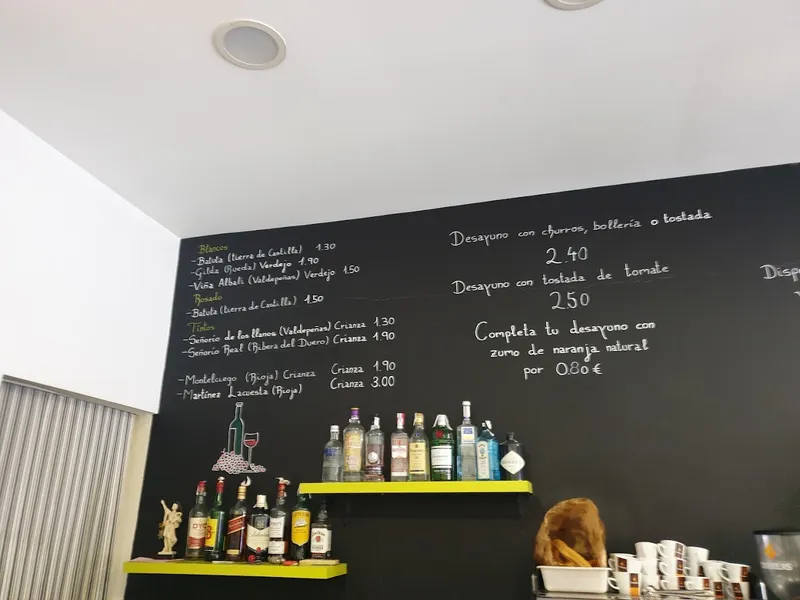 Blancos
-Batuta (tierra de Castilla) 1.30
-Gilda (Rueda) Verdejo 1.90
-Viña Albali (Valdepeñas) Verdejo 1.50
Rosado
-Batuta (tierra de Castilla) 1.50
Tintos
-Señorio de los llanos (Valdepeñas) Crianza 1.30
-Señorio Real (Ribera del Duero) Crianza 1.90
-Montelciego (Rioja) Crianza Crianza 1.90
-Martínez Lacuesta (Rioja) Crianza 3.00
Desayuno con churros, bollería o tostada
2.40
Desayuno con tostada de tomate
2.50
Completa tu desayuno con
zumo de naranja natural
por 0.80€